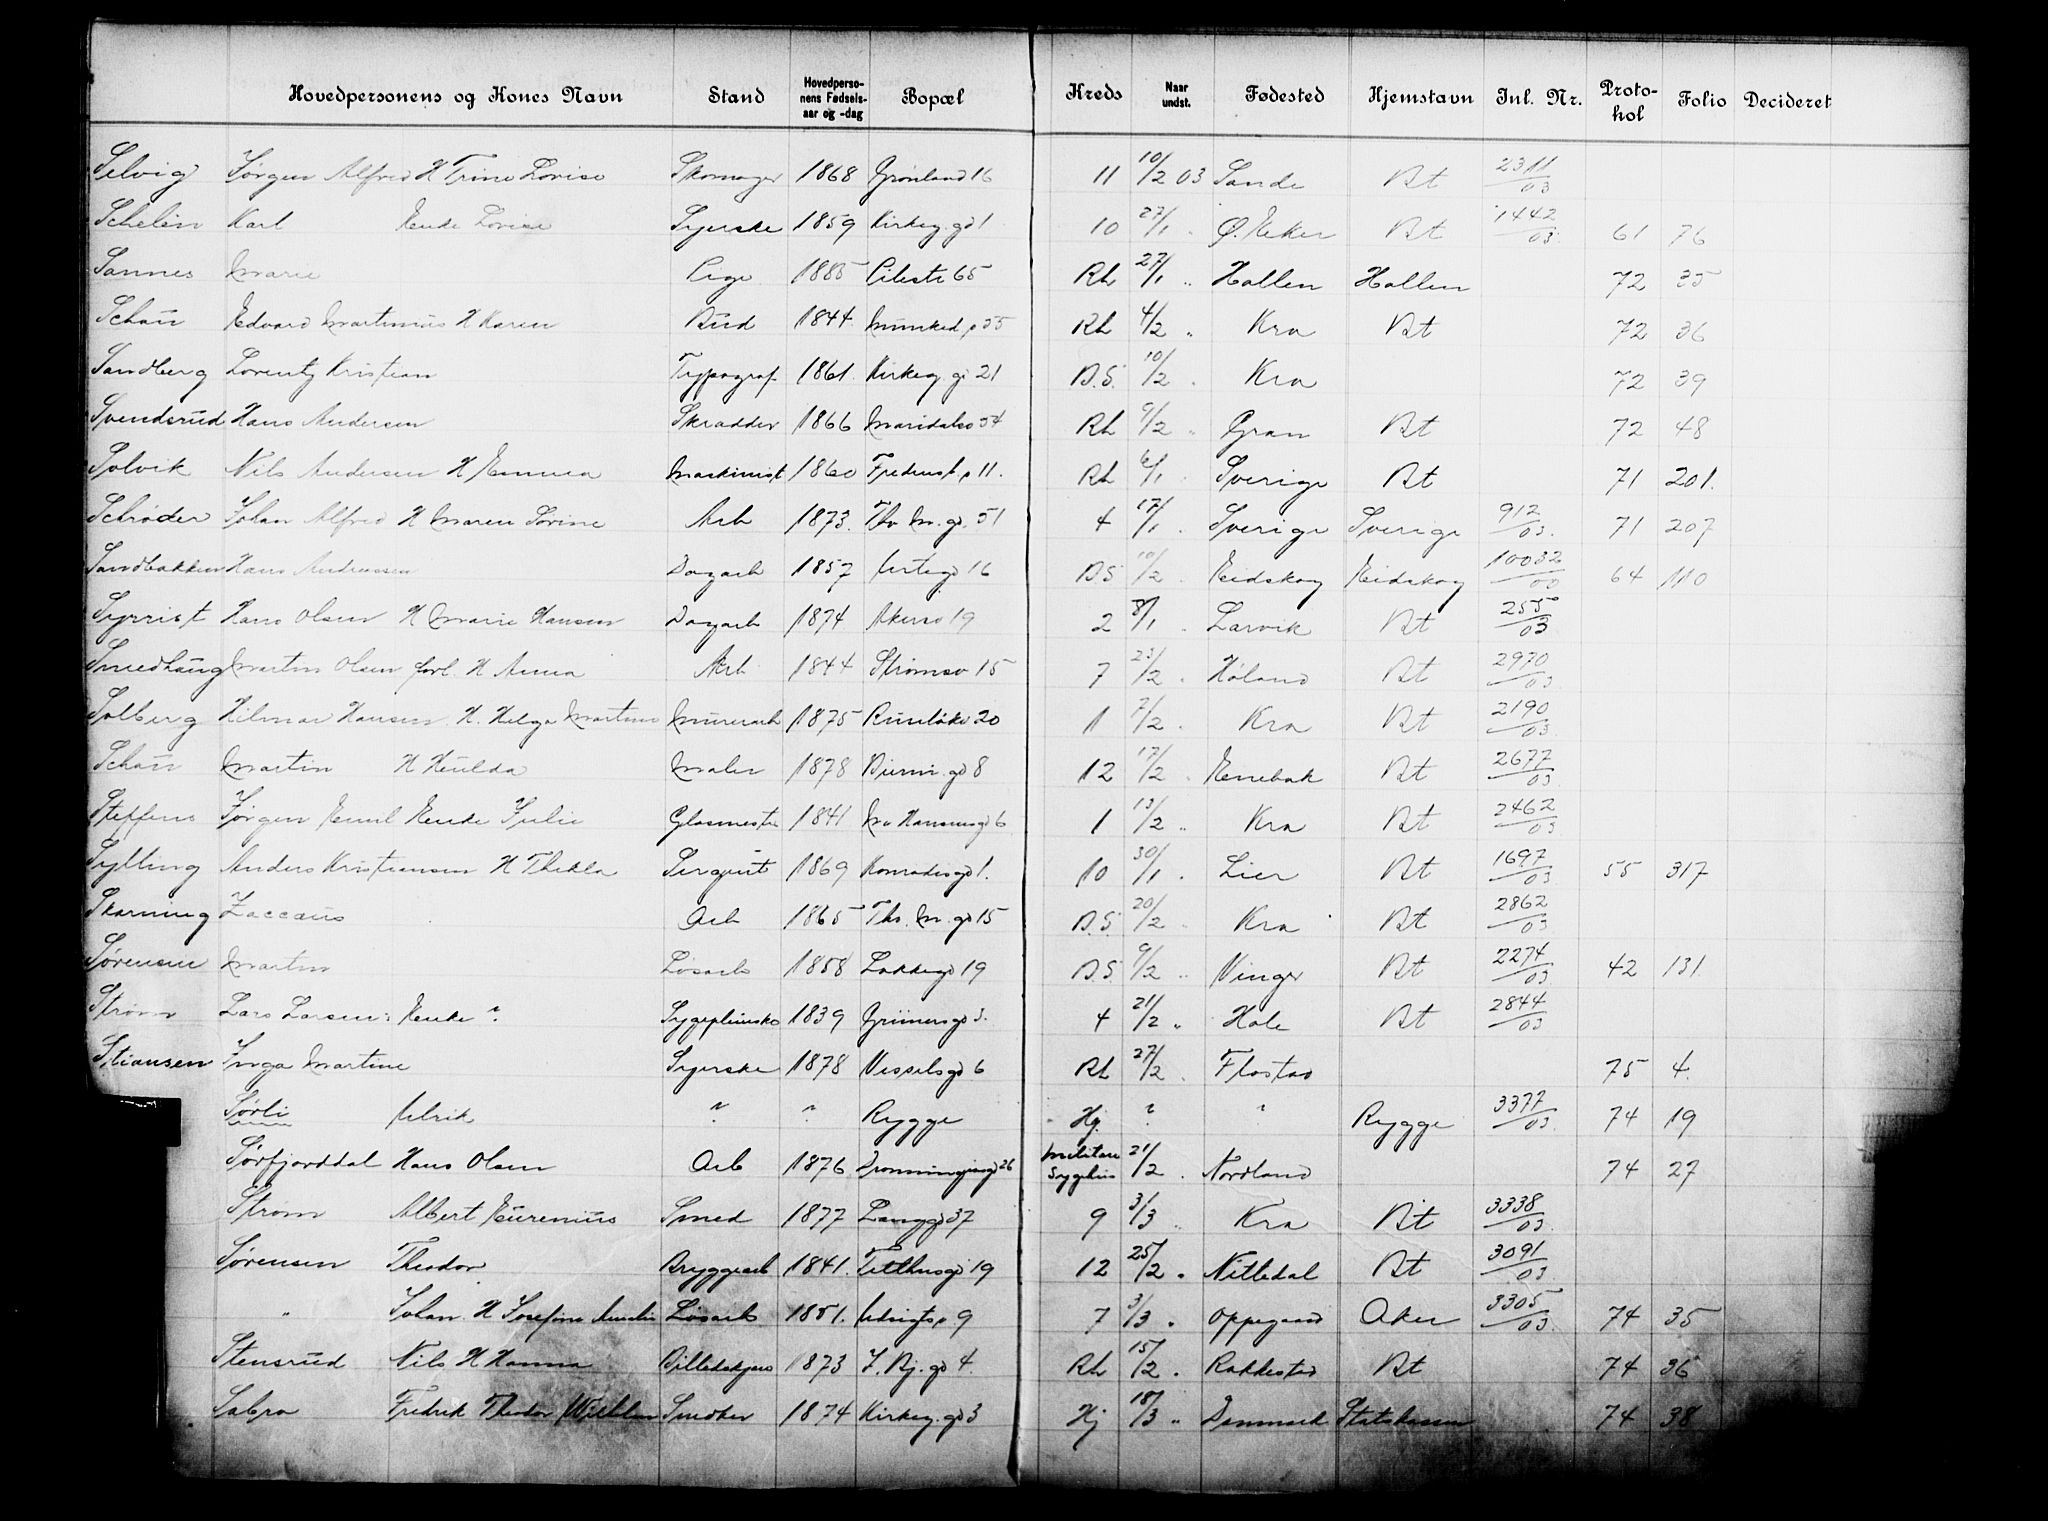 Hovedpersonens og Kones Navn Stand Hovedperso-nens Fødsels-aar og -dag Bopæl Kreds Naar undst. Fødested Hjemstavn Inl. Nr. Proto-kol Folio Decideret
Selvig Jørgen Alfred H Trine Lovise Skomager 1868 Grønland 16 11 10/2 03 Sande Bt 2311/03
Schelin Karl Enke Lovise Syerske 1859 Kirkeg.gd 1 10 27/1 " Ø. Eker Bt 1442/03 61 76
Sannes Marie Pige 1885 Pilestr 65 Rh 27/1 " Hallen Hallen 72 35
Schau Edvard Martinius H Karen Bud 1844 Munked. 35 Rh 4/2 " Kra Bt 72 36
Sandberg Lorentz Kristian Typograf 1861. Kirkeg. gd 21 B.S. 10/2 " Kra 72 39
Svendsrud Hans Andersen Skrædder 1866 Maridalsv 54 Rh 9/2 " Gran Bt 72 48
Solvik Nils Andersen H Emma Maskinist 1860 11. Rh 6/1 " Sverige Bt 71 201.
Schrøder Johan Alfred H Maren Lovine Arb 1873. Thv. M. gd. 51 4 17/1 " Sverige Sverige 912/03. 71 207
Sandbakken Hans Andreassen Dagarb 1857 Urtegd 16 B.S 10/2 " Eidskog Eidskog 10032/00 64 110
Syrrist Hans Olsen H Marie Hansen Dagarb 1874 Akersv 19 2 8/1 " Larvik Bt 255/03
Smedhaug Martin Olsen forl. H Anna Arb 1844 Strømsv 15 7 23/2 " Høland Bt 2970/03
Solberg Hilmar Hansen H. Helga Martine Murerarb 1875 Runløkv 20 1 7/2 " Kra Bt 2190/03
Schau Martin H Hulda Maler 1878 gd 8 12 17/2 " Enebak Bt 2677/03
Steffens Jørgen Emil Enke Julie Glasmester 1841 M. Hansensgd 6 1 13/2 " Kra Bt 2462/03
Sylling Anders Kristiansen H Thekla Sergeant 1869 Konradisgd 1. 10 30/1 " Lier Bt 1697/03 55 317
Skarning Zaccaus Arb 1865 Th. M. gd 15 B.S. 20/2 " Kra Bt 2862/03
Sørensen Martin Løsarb 1858 Lakkegd 19 B.S 9/2 " Vinger Bt 2274/03 42 131
Strøm Lars Larsen Enke ? 1839 Grünersgd 3. 4 21/2 " Hole Bt 2844/03
Stiansen Inga Martine Syerske 1878 Vesselsgd 6 Rh 27/2 " Flostad 75 4.
Sørli Ulrik ? ? Rygge Hj. ? ? Rygge 3377/03 74 19
Sørfjorddal Hans Olsen Arb 1876 Dronningensgd 26 Militære Sygehus 21/2 " Nordland 74 27
Strøm Albert Eurenius Smed 1877 Langgd 37 9 3/3 " Kra Bt 3338/03
Sørensen Theodor Bryggearb 1841. Tofthusgd 19 12 25/2 " Nittedal Bt 3091/03
" Johan H Josefine Amalie Løsarb 1851. 9 7 3/3 " Oppegaard Aker 3305/03 74 35
Stensrud Nils H Hanna Billedskjærer 1873 J. Bj. gd 4. Rh 15/2 " Rakkestad Bt 74 36
Sabro Fredrik Theodor Wilhelm Snedker 1874 Kirkeg. gd 3 Hj 18/3 " Danmark Statskassen 74 38